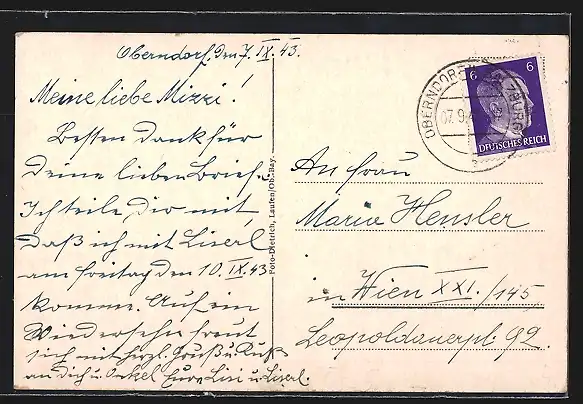 Oberndorf, den 7. IX. 43.
Meine liebe Mizzi!
Besten Dank für
Deine lieben Brief.
Ich teile Dir mit,
daß ich mit Liserl
am Freitag den 10. IX. 43
komme. Auf ein
Wiedersehn freut
sich mit herzl. Gruß u. Kuß
an dich u. Onkel Eure Lisi u. Liserl.
Foto-Dietrich, Laufen/Ob.-Bay.
OBERNDORF
ZBURG
07.9.4
6 6
DEUTSCHES REICH
An Frau
Maria Hensler
in Wien XXI./145
Leopoldauerpl. 92.